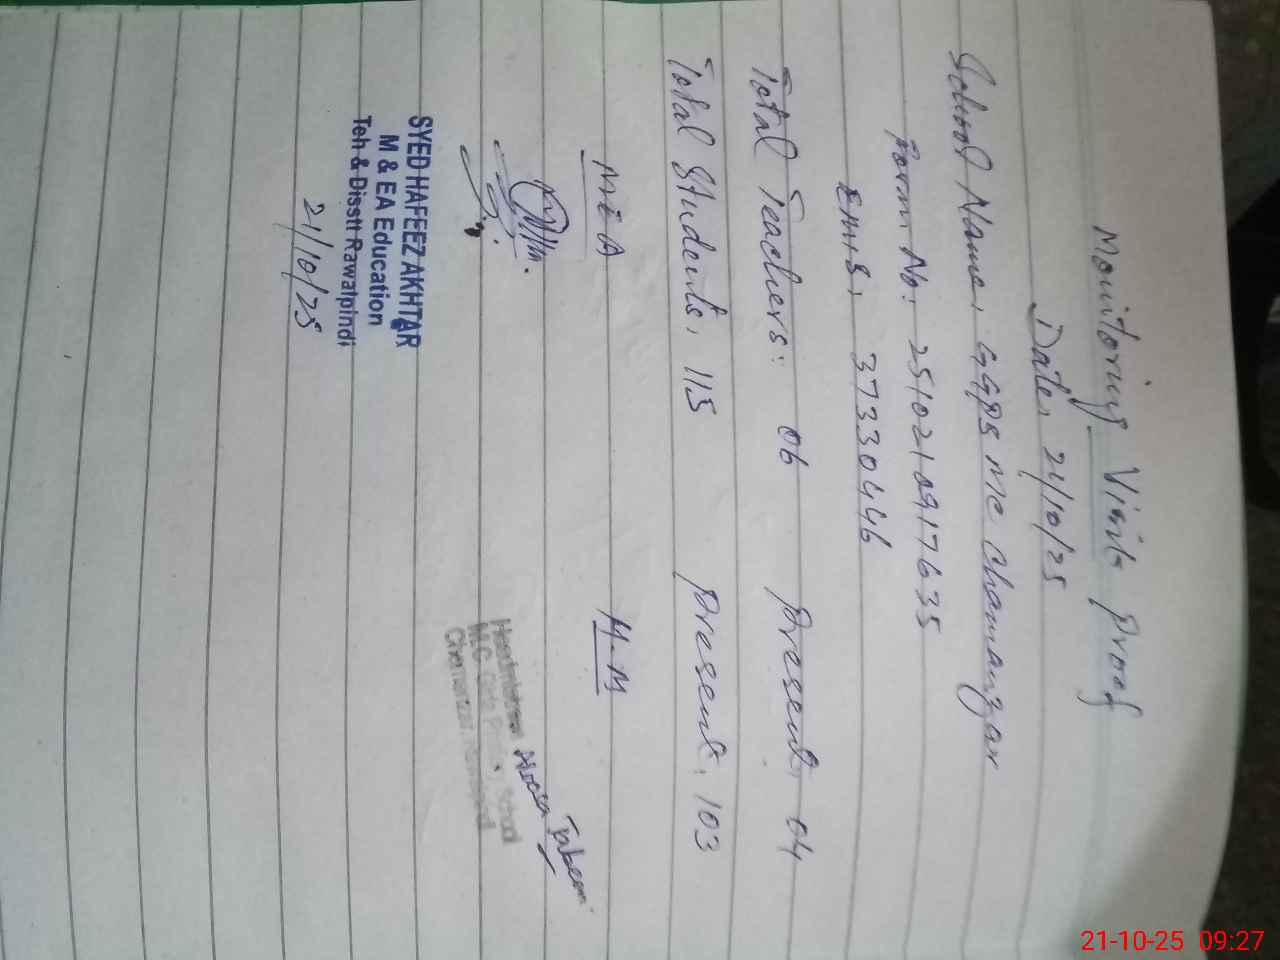 Monitoring Visit Proof
Date: 21/10/25
School Name: GGPS MC Chamanzar
Form No: 2510210917635
EMIS: 37330446
Total Teachers: 06 Present: 04
Total Students: 115 Present: 103
MEA H.M
SYED HAFEEZ AKHTAR
M & EA Education
Teh & Disstt Rawalpindi
21/10/25
Headmistress
M.C. Girls Primary School
Chamanzar Rawalpindi
21-10-25 09:27